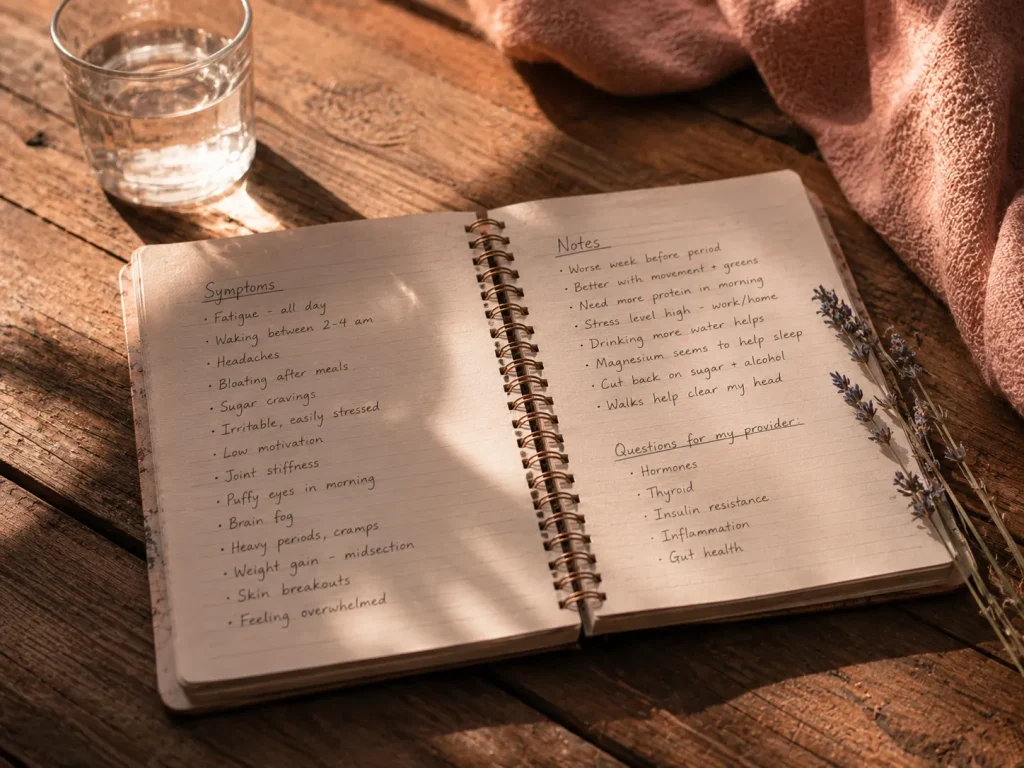 Symptoms
• Fatigue - all day
• Waking between 2-4 am
• Headaches
• Bloating after meals
• Sugar cravings
• Irritable, easily stressed
• Low motivation
• Joint stiffness
• Puffy eyes in morning
• Brain fog
• Heavy periods, cramps
• Weight gain - midsection
• Skin breakouts
• Feeling overwhelmed
Notes
• Worse week before period
• Better with movement + greens
• Need more protein in morning
• Stress level high - work/home
• Drinking more water helps
• Magnesium seems to help sleep
• Cut back on sugar + alcohol
• Walks help clear my head
Questions for my provider:
• Hormones
• Thyroid
• Insulin resistance
• Inflammation
• Gut health